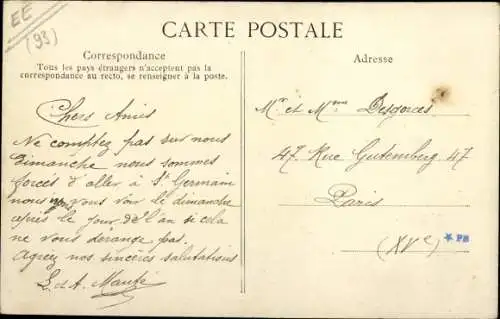 EE
(93)
CARTE POSTALE
Correspondance
Tous les pays étrangers n'acceptent pas la
correspondance au recto, se renseigner à la poste.
Adresse
Chers Amis
Ne comptez pas sur nous
dimanche nous sommes
forcés d'aller à St. Germain
nous vous voir le dimanche
après le jour de l'an si cela
ne vous dérange pas.
Agréez nos sincères salutations
L. et A.
Mr et Mme Desgorces
47 Rue Gutemberg 47
Paris
(XVe)
PB